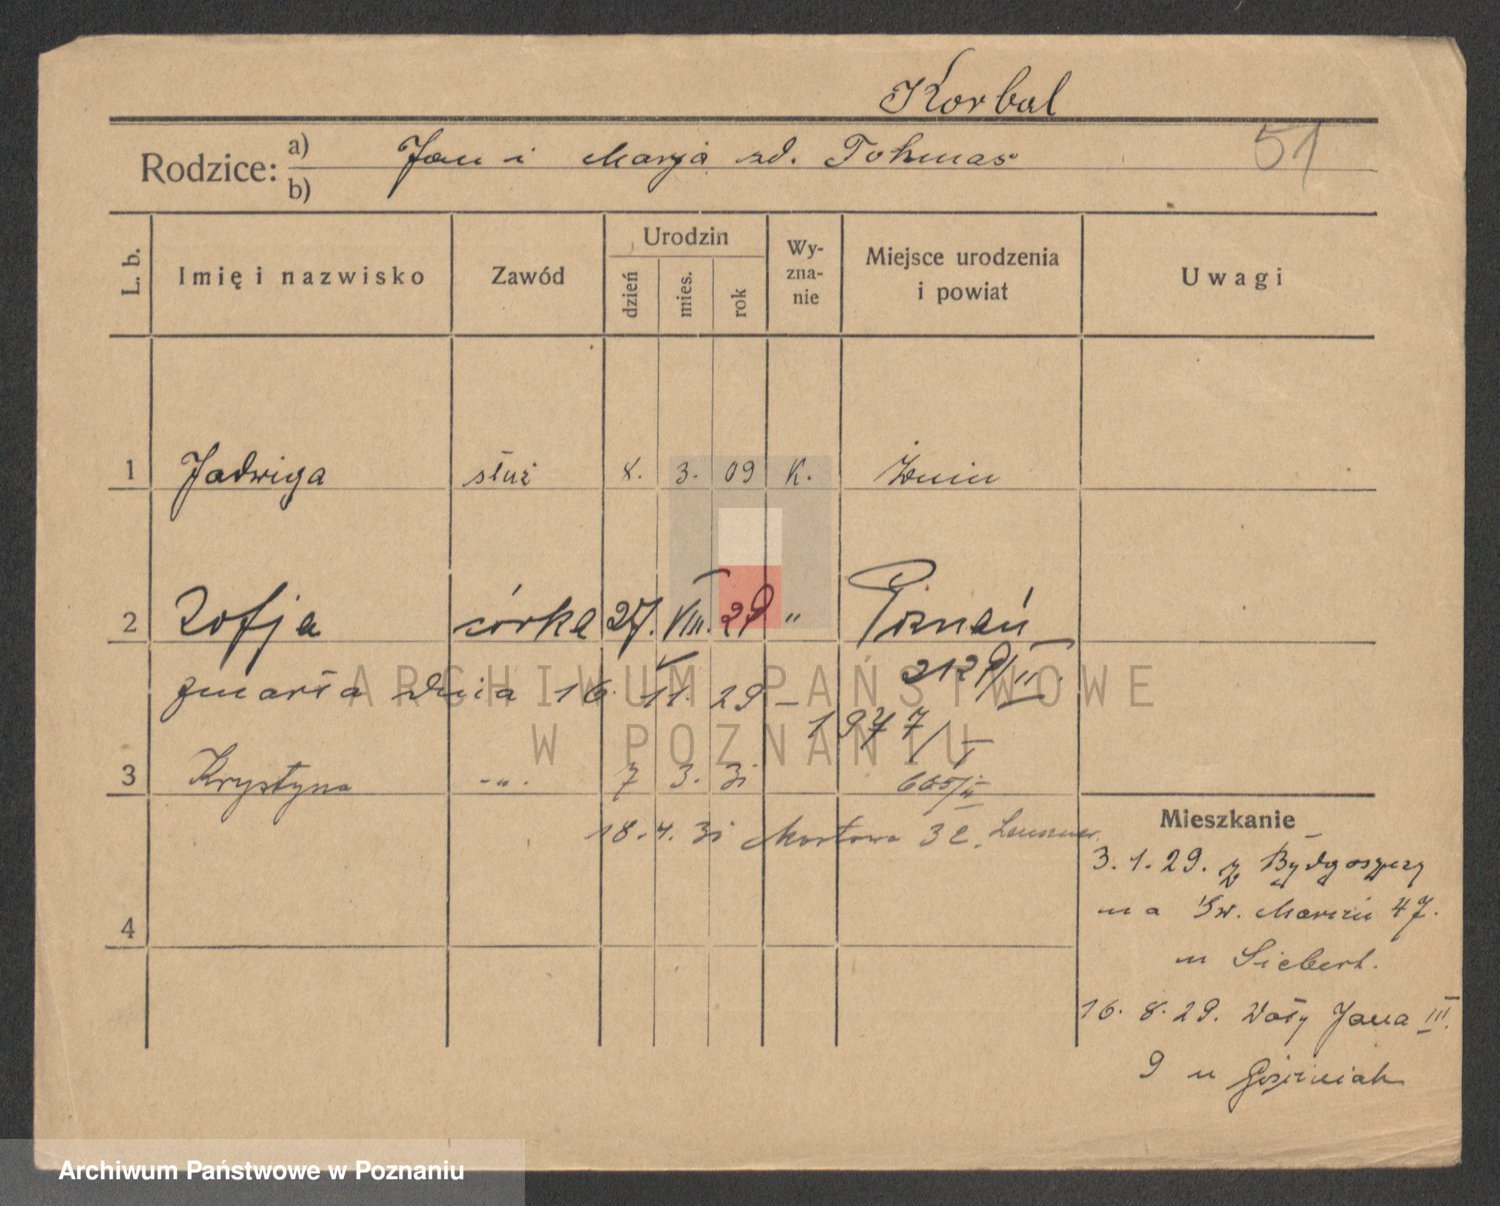 Korbal
51
Rodzice: a) Jan i Marja zd. Tohmas
b)
L. b. Imię i nazwisko Zawód Urodzin dzień mies. rok Wyznanie Miejsce urodzenia i powiat Uwagi
1 Jadwiga służ 8. 3. 09 K. Żnin
2 Zofja córka 27. VIII. 29 " Poznań
2129/III.
zmarła dnia 16. 11. 29 –
1977/I
3 Krystyna -"- 7 3. 31 605/II
18. 4. 31 Mostowa 32.
Mieszkanie
3. 1. 29. z Bydgoszczy
na Św. Marcin 47.
u Siebert.
4
16. 8. 29. Wały Jana III.
9 u
ARCHIWUM PAŃSTWOWE
W POZNANIU
Archiwum Państwowe w Poznaniu